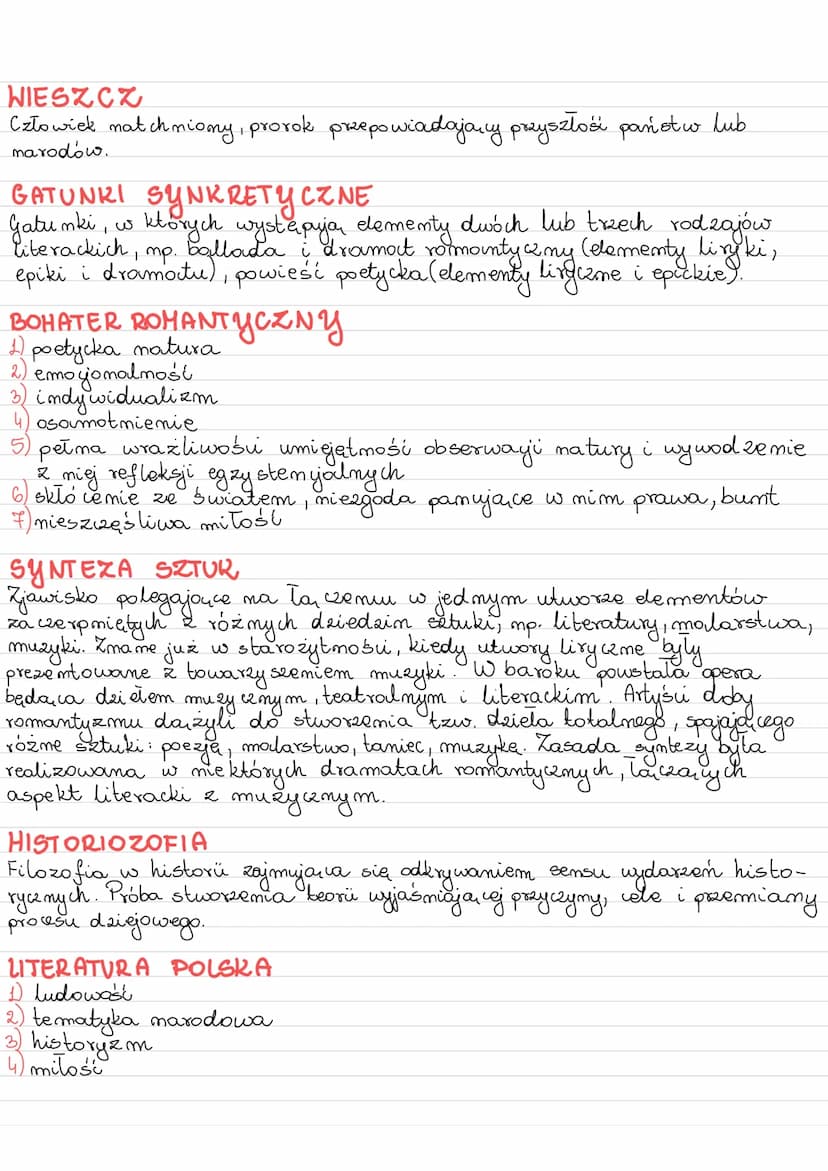 WIESZCZ
Człowiek natchniony, prorok przepowiadający przyszłość państw lub
narodów.
GATUNKI SYNKRETYCZNE
Gatunki, w których występują elementy dwóch lub trzech rodzajów
literackich, np. ballada i dramat romantyczny (elementy liryki,
epiki i dramatu), powieść poetycka (elementy liryczne i epickie).
BOHATER ROMANTYCZNY
1) poetycka natura
2) emocjonalność
3) indywidualizm
4) osamotnienie
5) pełna wrażliwości umiejętność obserwacji natury i wywodzenie
z niej refleksji egzystencjalnych
6) skłócenie ze światem, niezgoda panujące w nim prawa, bunt
7) nieszczęśliwa miłość
SYNTEZA SZTUK
Zjawisko polegające na łączeniu w jednym utworze elementów
zaczerpniętych z różnych dziedzin sztuki, np. literatury, malarstwa,
muzyki. Znane już w starożytności, kiedy utwory liryczne były
prezentowane z towarzyszeniem muzyki. W baroku powstała opera
będąca dziełem muzycznym, teatralnym i literackim. Artyści doby
romantyzmu dążyli do stworzenia tzw. dzieła totalnego, spajającego
różne sztuki: poezję, malarstwo, taniec, muzykę. Zasada syntezy była
realizowana w niektórych dramatach romantycznych, łączących
aspekt literacki z muzycznym.
HISTORIOZOFIA
Filozofia w historii zajmująca się odkrywaniem sensu wydarzeń histo-
rycznych. Próba stworzenia teorii wyjaśniającej przyczyny, cele i przemiany
procesu dziejowego.
LITERATURA POLSKA
1) ludowość
2) tematyka narodowa
3) historyzm
4) miłość